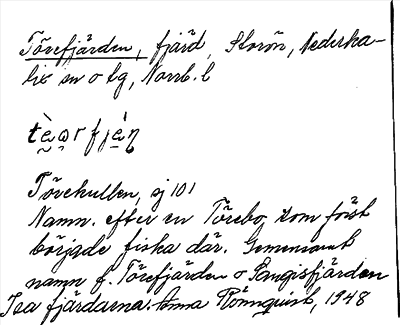 Törefjärden, fjärd, Storön, Nederka-
lix sn o tg, Norrb. l
Törekullen, sj 101
Namn. efter en Törebo, som först
började fiska där. Gemensamt
namn f. Törefjärden o Sangisfjärden
fjärdarna. Anna Rönnquist, 1948